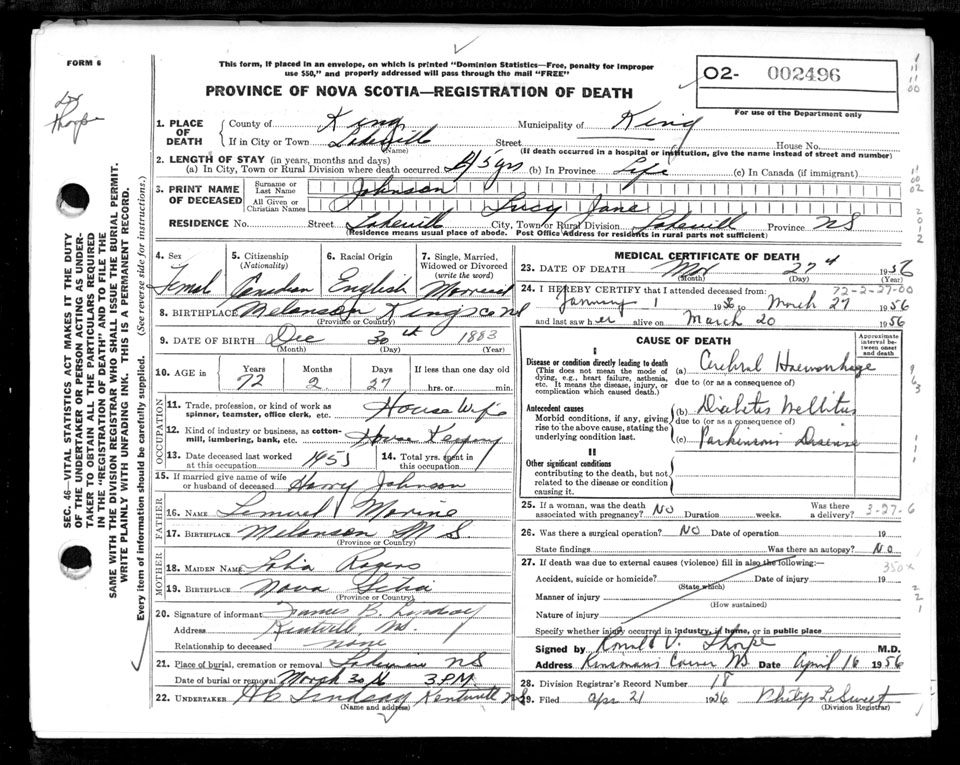 FORM 6
Dr
Thorpe
This form, if placed in an envelope, on which is printed "Dominion Statistics—Free, penalty for improper
use $50," and properly addressed will pass through the mail "FREE"
PROVINCE OF NOVA SCOTIA—REGISTRATION OF DEATH
02- 002496
For use of the Department only
SEC. 46—VITAL STATISTICS ACT MAKES IT THE DUTY
OF THE UNDERTAKER OR PERSON ACTING AS UNDER-
TAKER TO OBTAIN ALL THE PARTICULARS REQUIRED
IN THE "REGISTRATION OF DEATH" AND TO FILE THE
SAME WITH THE DIVISION REGISTRAR WHO SHALL ISSUE THE BURIAL PERMIT.
WRITE PLAINLY WITH UNFADING INK. THIS IS A PERMANENT RECORD.
Every item of information should be carefully supplied. (See reverse side for instructions.)
1. PLACE OF DEATH County of King Municipality of King
If in City or Town Lakeville Street House No.
(Name) (If death occurred in a hospital or institution, give the name instead of street and number)
2. LENGTH OF STAY (in years, months and days)
(a) In City, Town or Rural Division where death occurred 5 yrs (b) In Province Life (c) In Canada (if immigrant)
3. PRINT NAME OF DECEASED Surname or Last Name Johnson
All Given or Christian Names Lucy Jane
RESIDENCE No. Street Lakevill City, Town or Rural Division Lakevill Province NS
(Residence means usual place of abode. Post Office Address for residents in rural parts not sufficient)
4. Sex 5. Citizenship (Nationality) 6. Racial Origin 7. Single, Married, Widowed or Divorced (write the word)
Femal Canadian English Marreed
8. BIRTHPLACE Melanson Kings co NS
(Province or Country)
9. DATE OF BIRTH Dec 30th 1883
(Month) (Day) (Year)
10. AGE in Years Months Days If less than one day old
72 2 27 hrs. or min.
OCCUPATION
11. Trade, profession, or kind of work as spinner, teamster, office clerk, etc. House Wife
12. Kind of industry or business, as cotton-mill, lumbering, bank, etc. House Keeping
13. Date deceased last worked at this occupation 1955 14. Total yrs. spent in this occupation
15. If married give name of wife or husband of deceased Harry Johnson
FATHER
16. NAME Lemuel Marine
17. BIRTHPLACE Melanson N S
(Province or Country)
MOTHER
18. MAIDEN NAME Rogers
19. BIRTHPLACE Nova Scotia
(Province or Country)
20. Signature of informant James B. Lindsay
Address Kentville, NS.
Relationship to deceased none
21. Place of burial, cremation or removal NS
Date of burial or removal March 30 3 PM
22. UNDERTAKER Lindsay Kentville NS
(Name and address)
MEDICAL CERTIFICATE OF DEATH
23. DATE OF DEATH Mar 27th 1956
(Month) (Day) (Year)
24. I HEREBY CERTIFY that I attended deceased from: 72-2-27-00
January 1 1956 to March 27 1956
and last saw her alive on March 20 1956
CAUSE OF DEATH
Approximate interval between onset and death
I
Disease or condition directly leading to death
(This does not mean the mode of dying, e.g., heart failure, asthenia, etc. It means the disease, injury, or complication which caused death.)
(a) Cerebral Haemorrhage
due to (or as a consequence of)
Antecedent causes
Morbid conditions, if any, giving rise to the above cause, stating the underlying condition last.
(b) Diabetes Mellitus
due to (or as a consequence of)
(c) Parkinsons Disease
II
Other significant conditions
contributing to the death, but not related to the disease or condition causing it.
25. If a woman, was the death associated with pregnancy? NO Duration weeks. Was there a delivery? 3-27-6
26. Was there a surgical operation? NO Date of operation 19
State findings Was there an autopsy? No
27. If death was due to external causes (violence) fill in also the following:— 350x
Accident, suicide or homicide? Date of injury 19
(State which)
Manner of injury
(How sustained)
Nature of injury
Specify whether injury occurred in industry, in home, or in public place
Signed by Ronald V. Thorpe M.D.
Address Kinsman's Corner NS Date April 16 1956
28. Division Registrar's Record Number 18
29. Filed Apr 21 1956 Philip L Sweet
(Division Registrar)